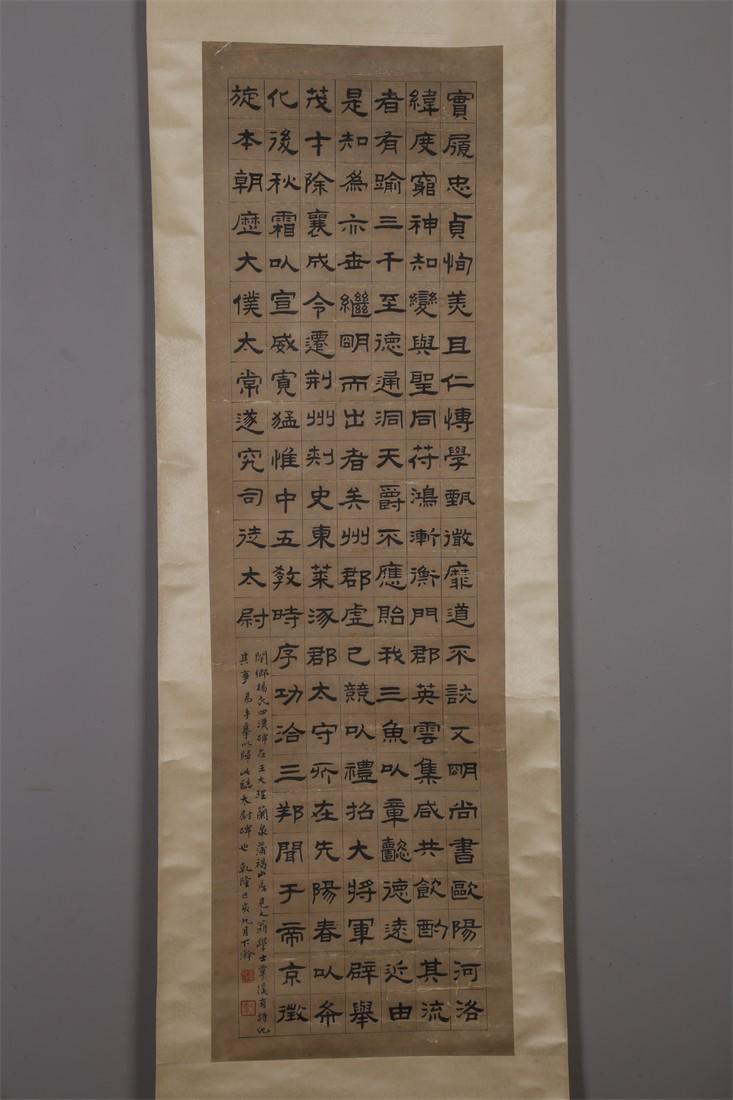 實履忠貞恂美且仁博學甄微靡道不該又明尚書歐陽河洛
緯度窮神知變與聖同符鴻漸衡門郡英雲集咸共飲酌其流
者有踰三千至德通洞天爵不應貽我三魚以章懿德遠近由
是知為亦世繼明而出者矣州郡虛己競以禮招大將軍辟舉
茂才除襄成令遷荊州刺史東萊涿郡太守所在先陽春以布
化後秋霜以宣威寬猛惟中五教時序功洽三邦聞于帝京徵
旋本朝歷大僕太常遂究司徒太尉
閿鄉楊氏四漢碑在王大理蘭泉蒲褐山房見之翁學士覃溪有詩化
其事 易手摹以歸 此臨太尉碑也 乾隆己亥九月下澣